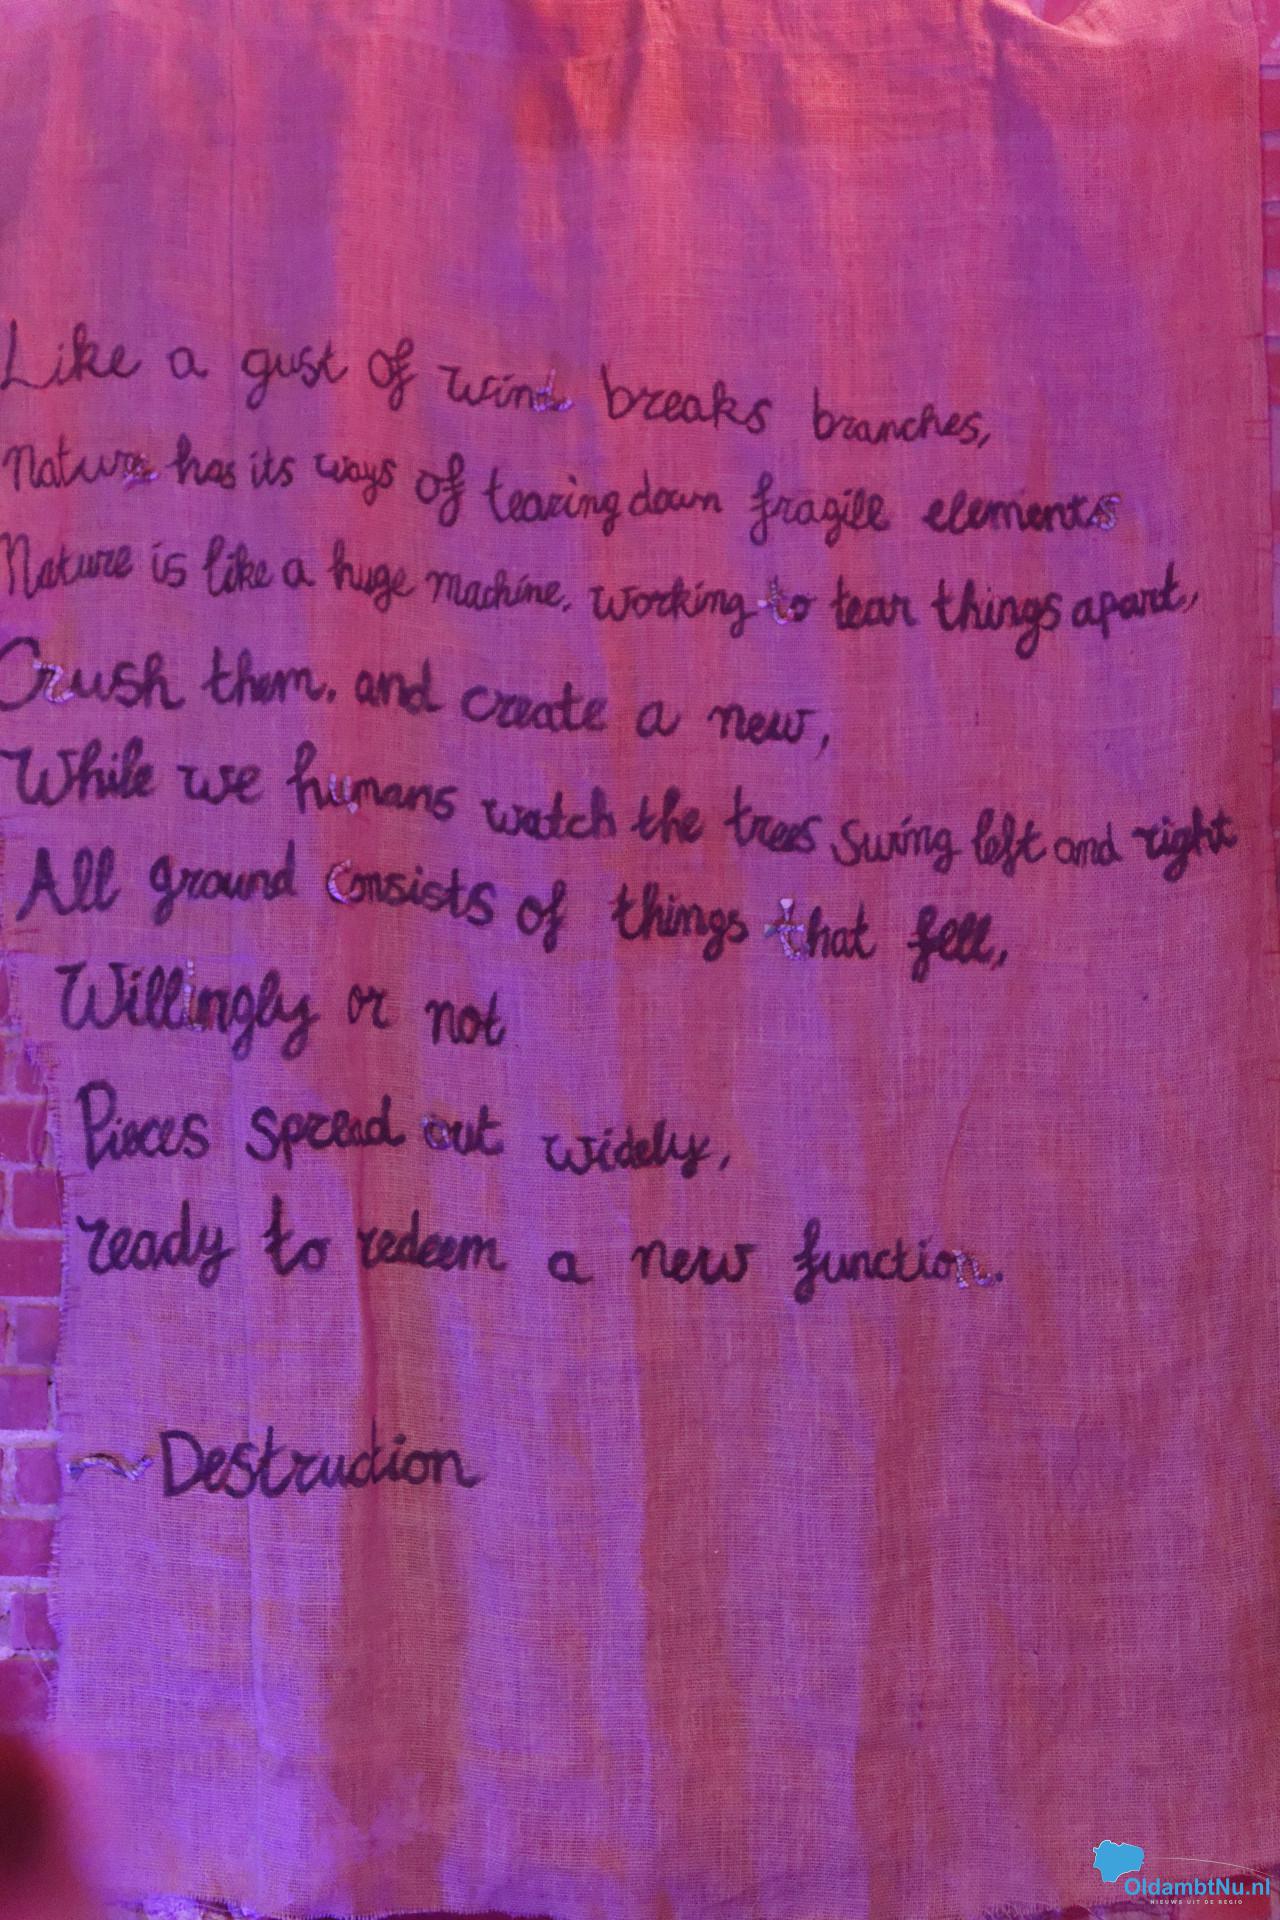 Like a gust of wind breaks branches,
Nature has its ways of tearing down fragile elements
Nature is like a huge machine. Working to tear things apart,
Crush them. and create a new,
While we humans watch the trees swing left and right
All ground consists of things that fell,
Willingly or not
Pieces spread out widely,
ready to redeem a new function.
~ Destruction
OldambtNu.nl
NIEUWS UIT DE REGIO